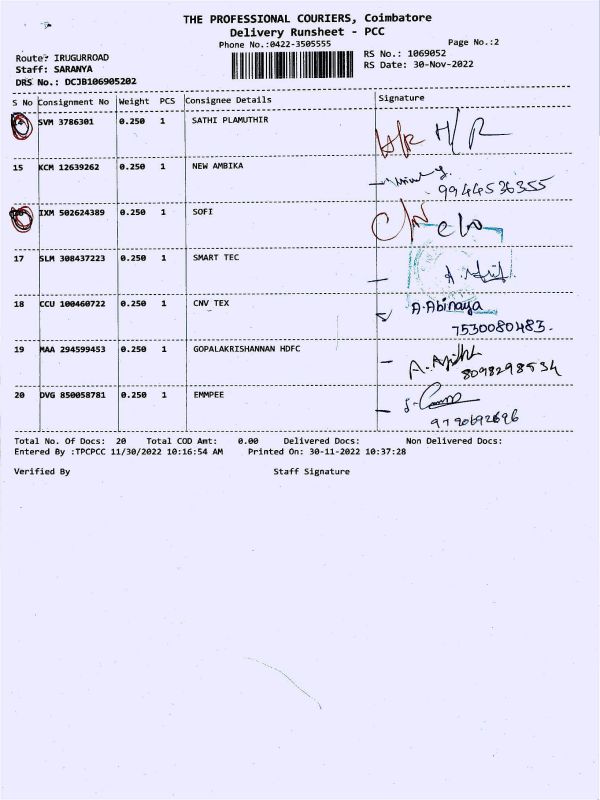 THE PROFESSIONAL COURIERS, Coimbatore
Delivery Runsheet - PCC
Phone No.:0422-3505555
Page No.:2
Route: IRUGURROAD
RS No.: 1069052
Staff: SARANYA
RS Date: 30-Nov-2022
DRS No.: DCJB106905202
S No Consignment No Weight PCS Consignee Details Signature
SVM 3786301 0.250 1 SATHI PLAMUTHIR H/R H/R
15 KCM 12639262 0.250 1 NEW AMBIKA
9944536355
IXM 502624389 0.250 1 SOFI C/N C/N
17 SLM 308437223 0.250 1 SMART TEC
18 CCU 100460722 0.250 1 CNV TEX A.Abinaya
7530080483.
19 MAA 294599453 0.250 1 GOPALAKRISHANNAN HDFC
8098298534
20 DVG 850058781 0.250 1 EMMPEE
9790692696
Total No. Of Docs: 20 Total COD Amt: 0.00 Delivered Docs: Non Delivered Docs:
Entered By :TPCPCC 11/30/2022 10:16:54 AM Printed On: 30-11-2022 10:37:28
Verified By Staff Signature